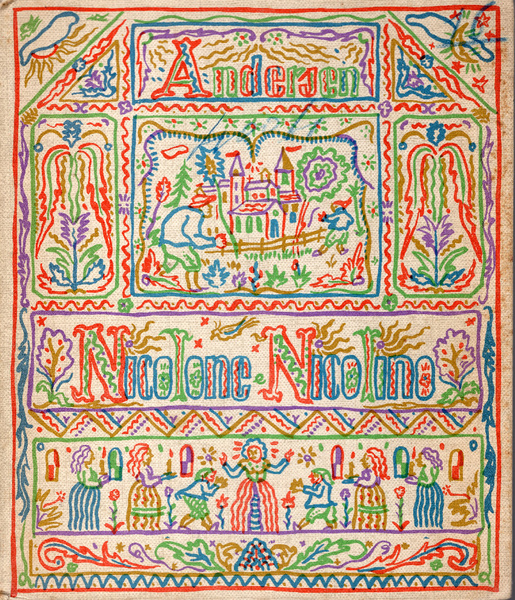 Andersen
Nicolone e Nicolino